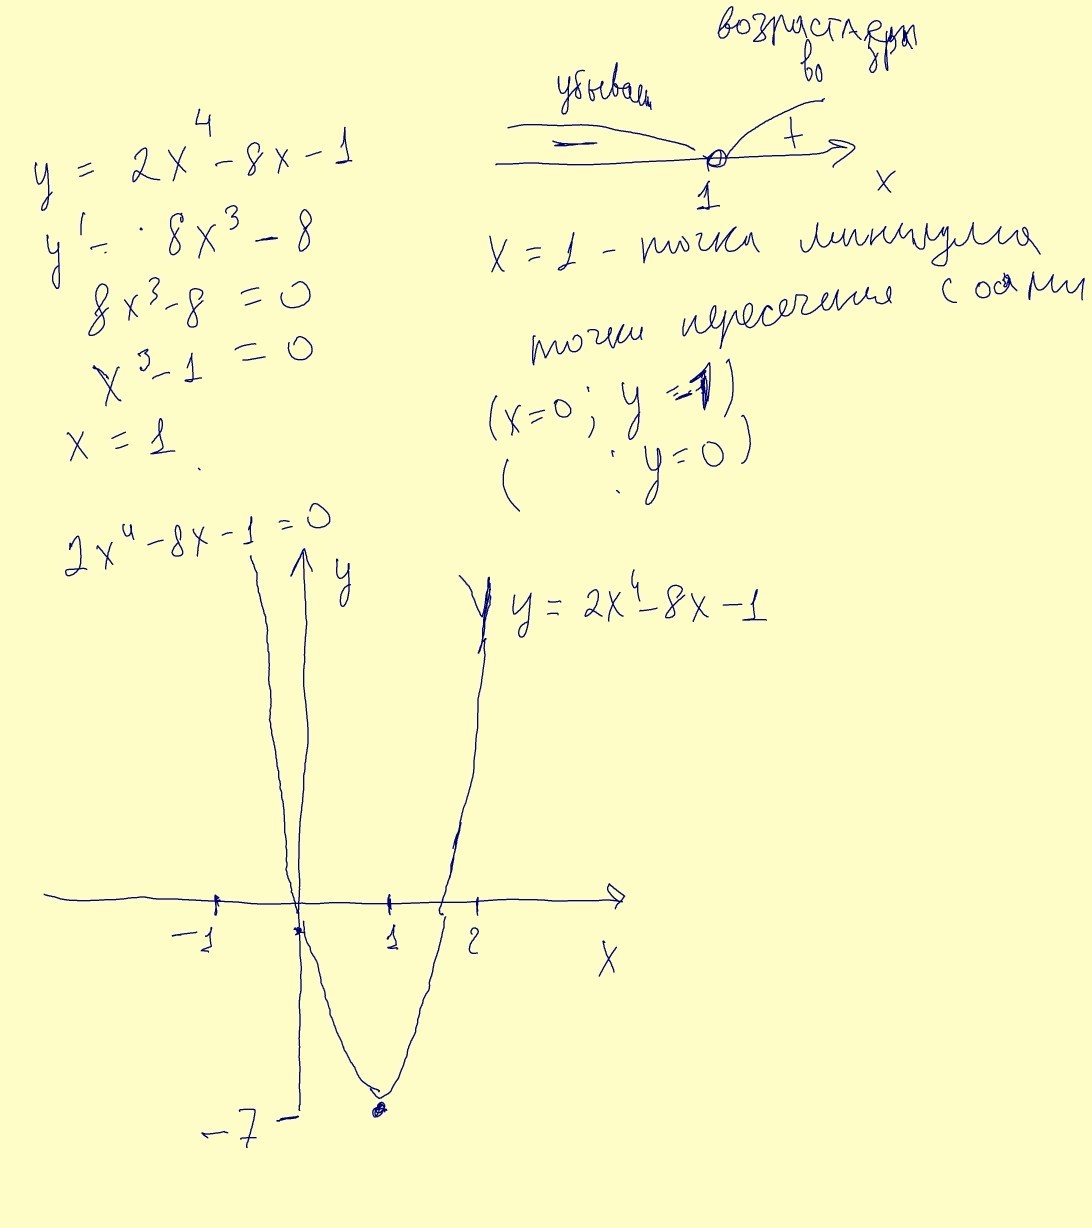 y = 2x⁴ - 8x - 1
y' = 8x³ - 8
8x³ - 8 = 0
x³ - 1 = 0
x = 1
убывает
возрастает
-
+
1
x
x = 1 - точка минимума
точки пересечения с осями
(x=0; y=-1)
( ; y=0)
2x⁴ - 8x - 1 = 0
y
y = 2x⁴ - 8x - 1
-1
1
2
x
-7